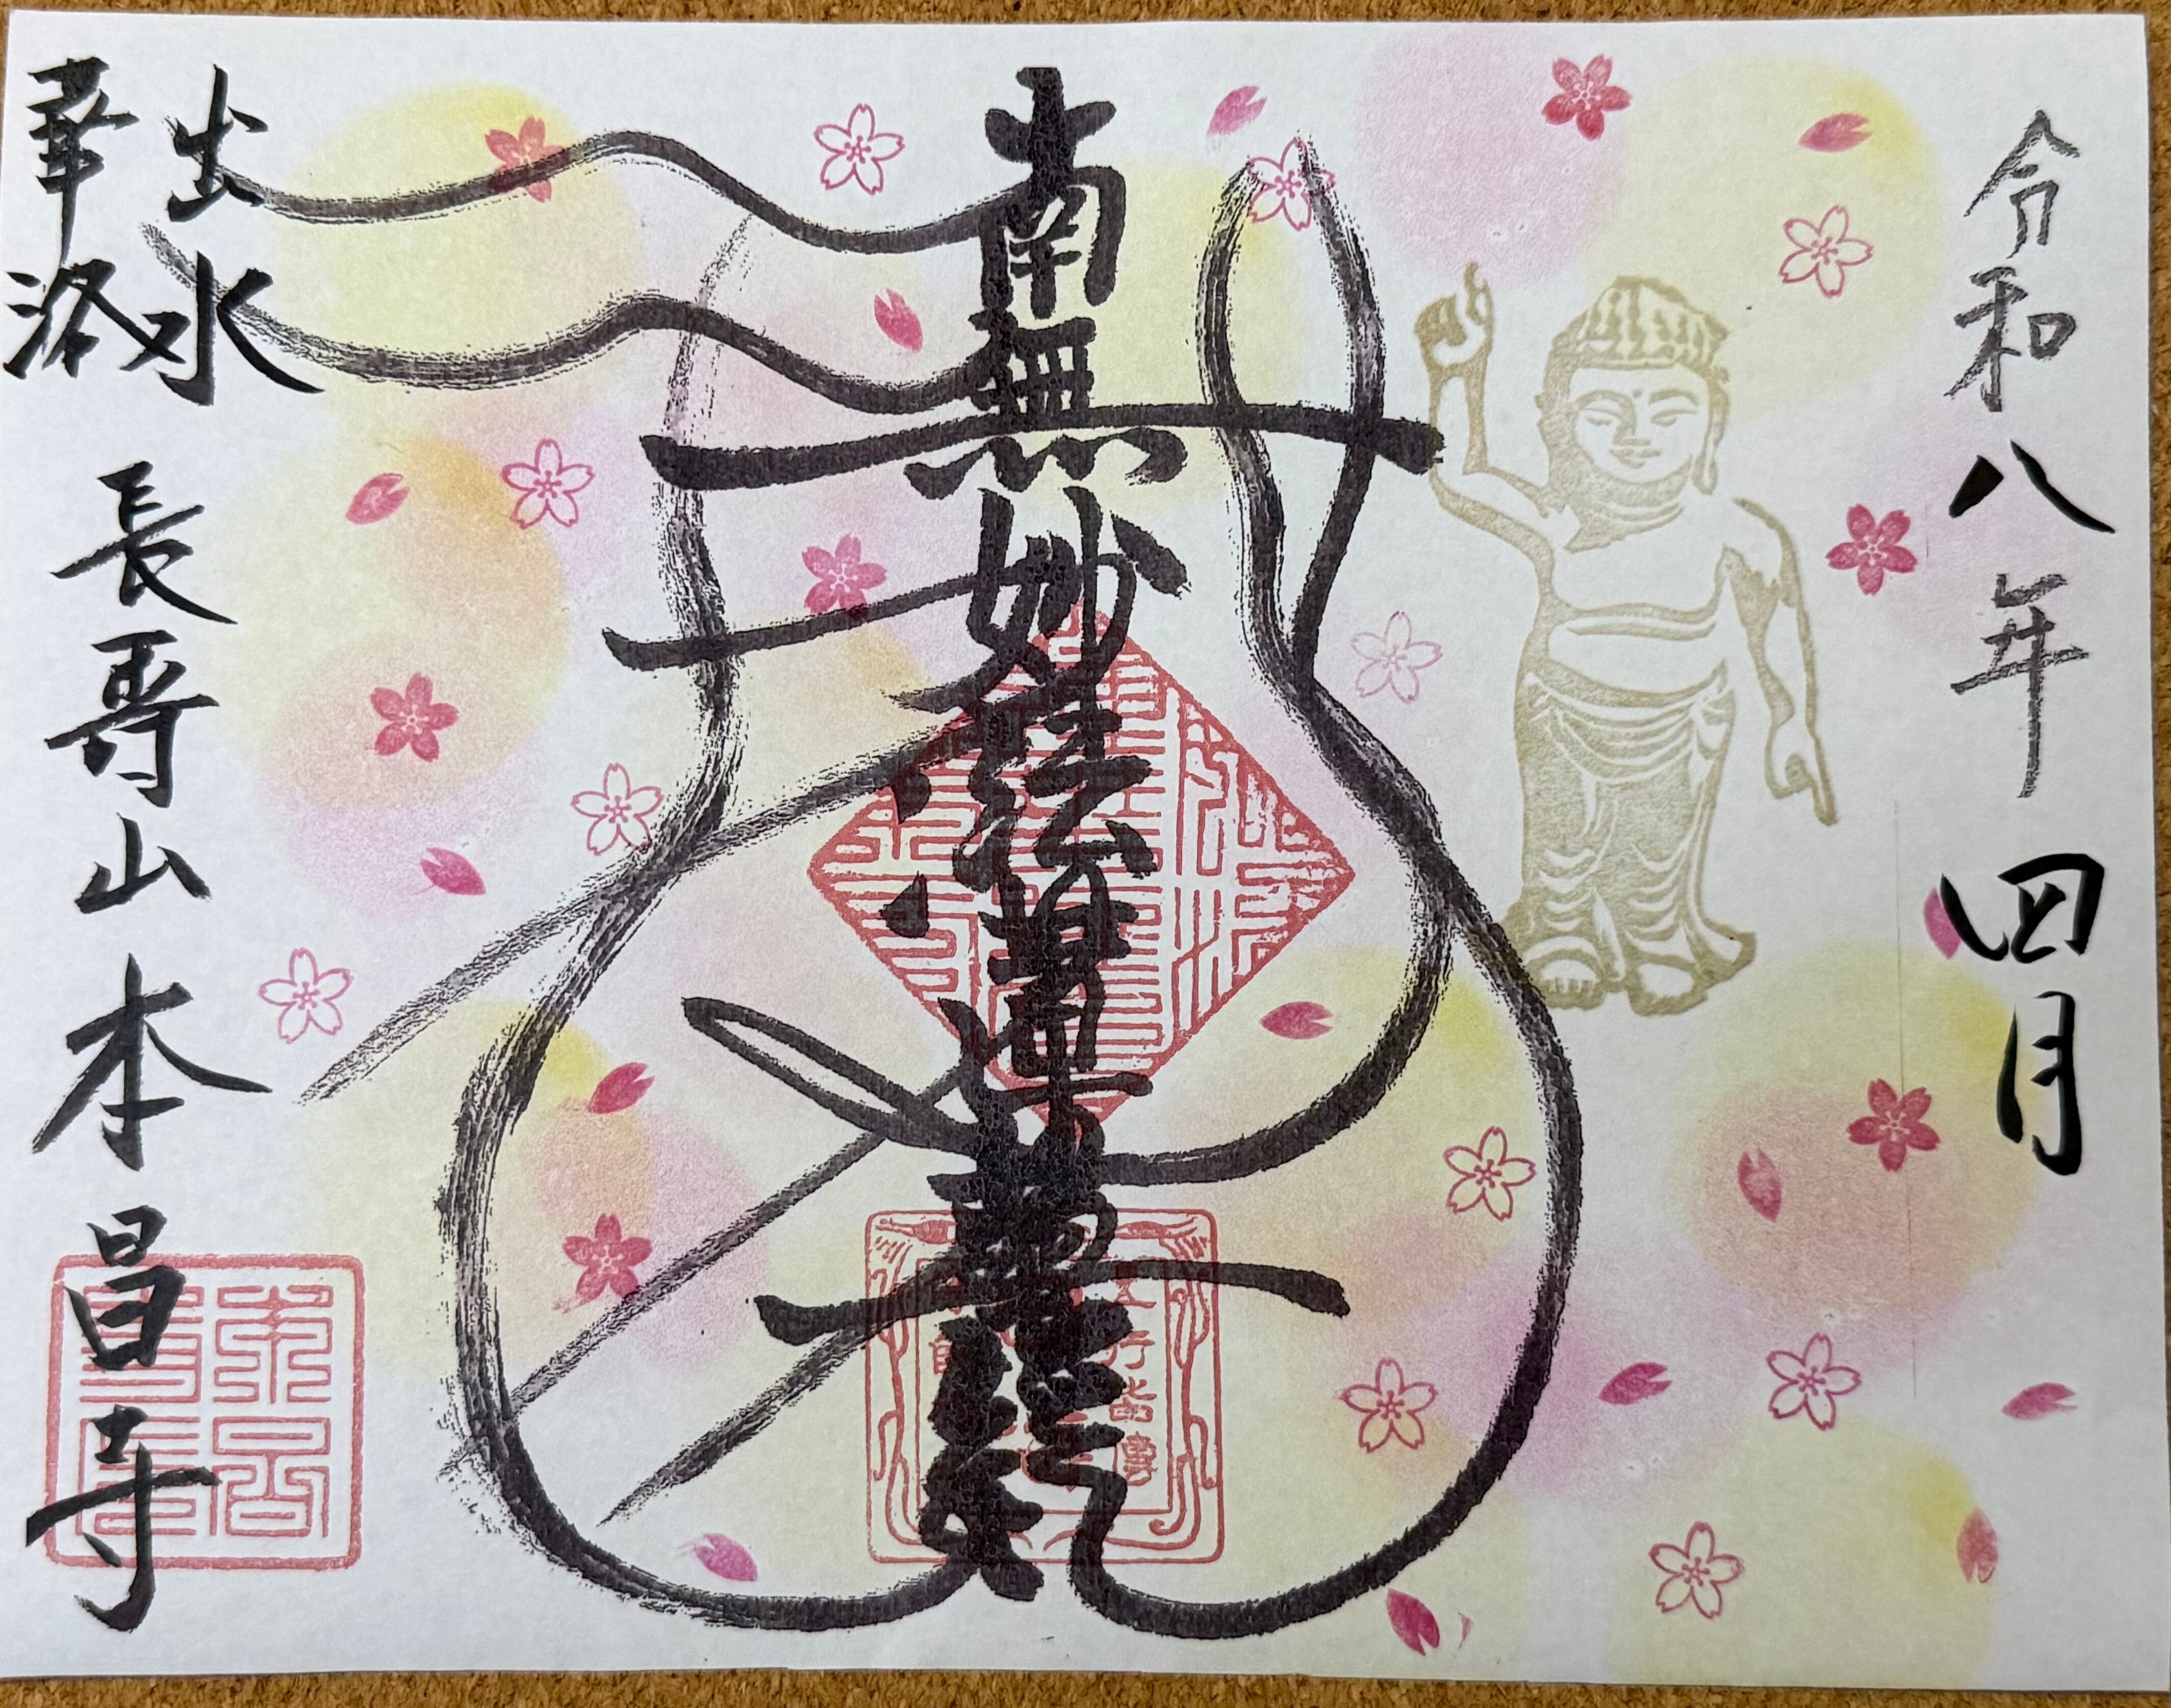 令和八年四月
南無妙法蓮華経
出水
華洛
長壽山本昌寺